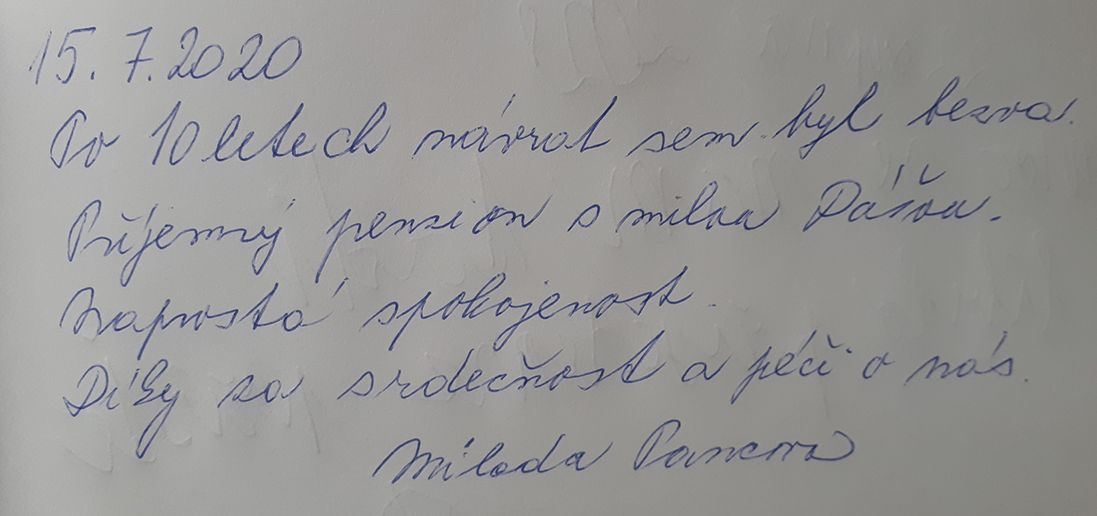 15. 7. 2020
Po 10 letech návrat sem byl bezva.
Příjemný pension s milou Dášou.
Naprostá spokojenost.
Díky za srdečnost a péči o nás.
Milada